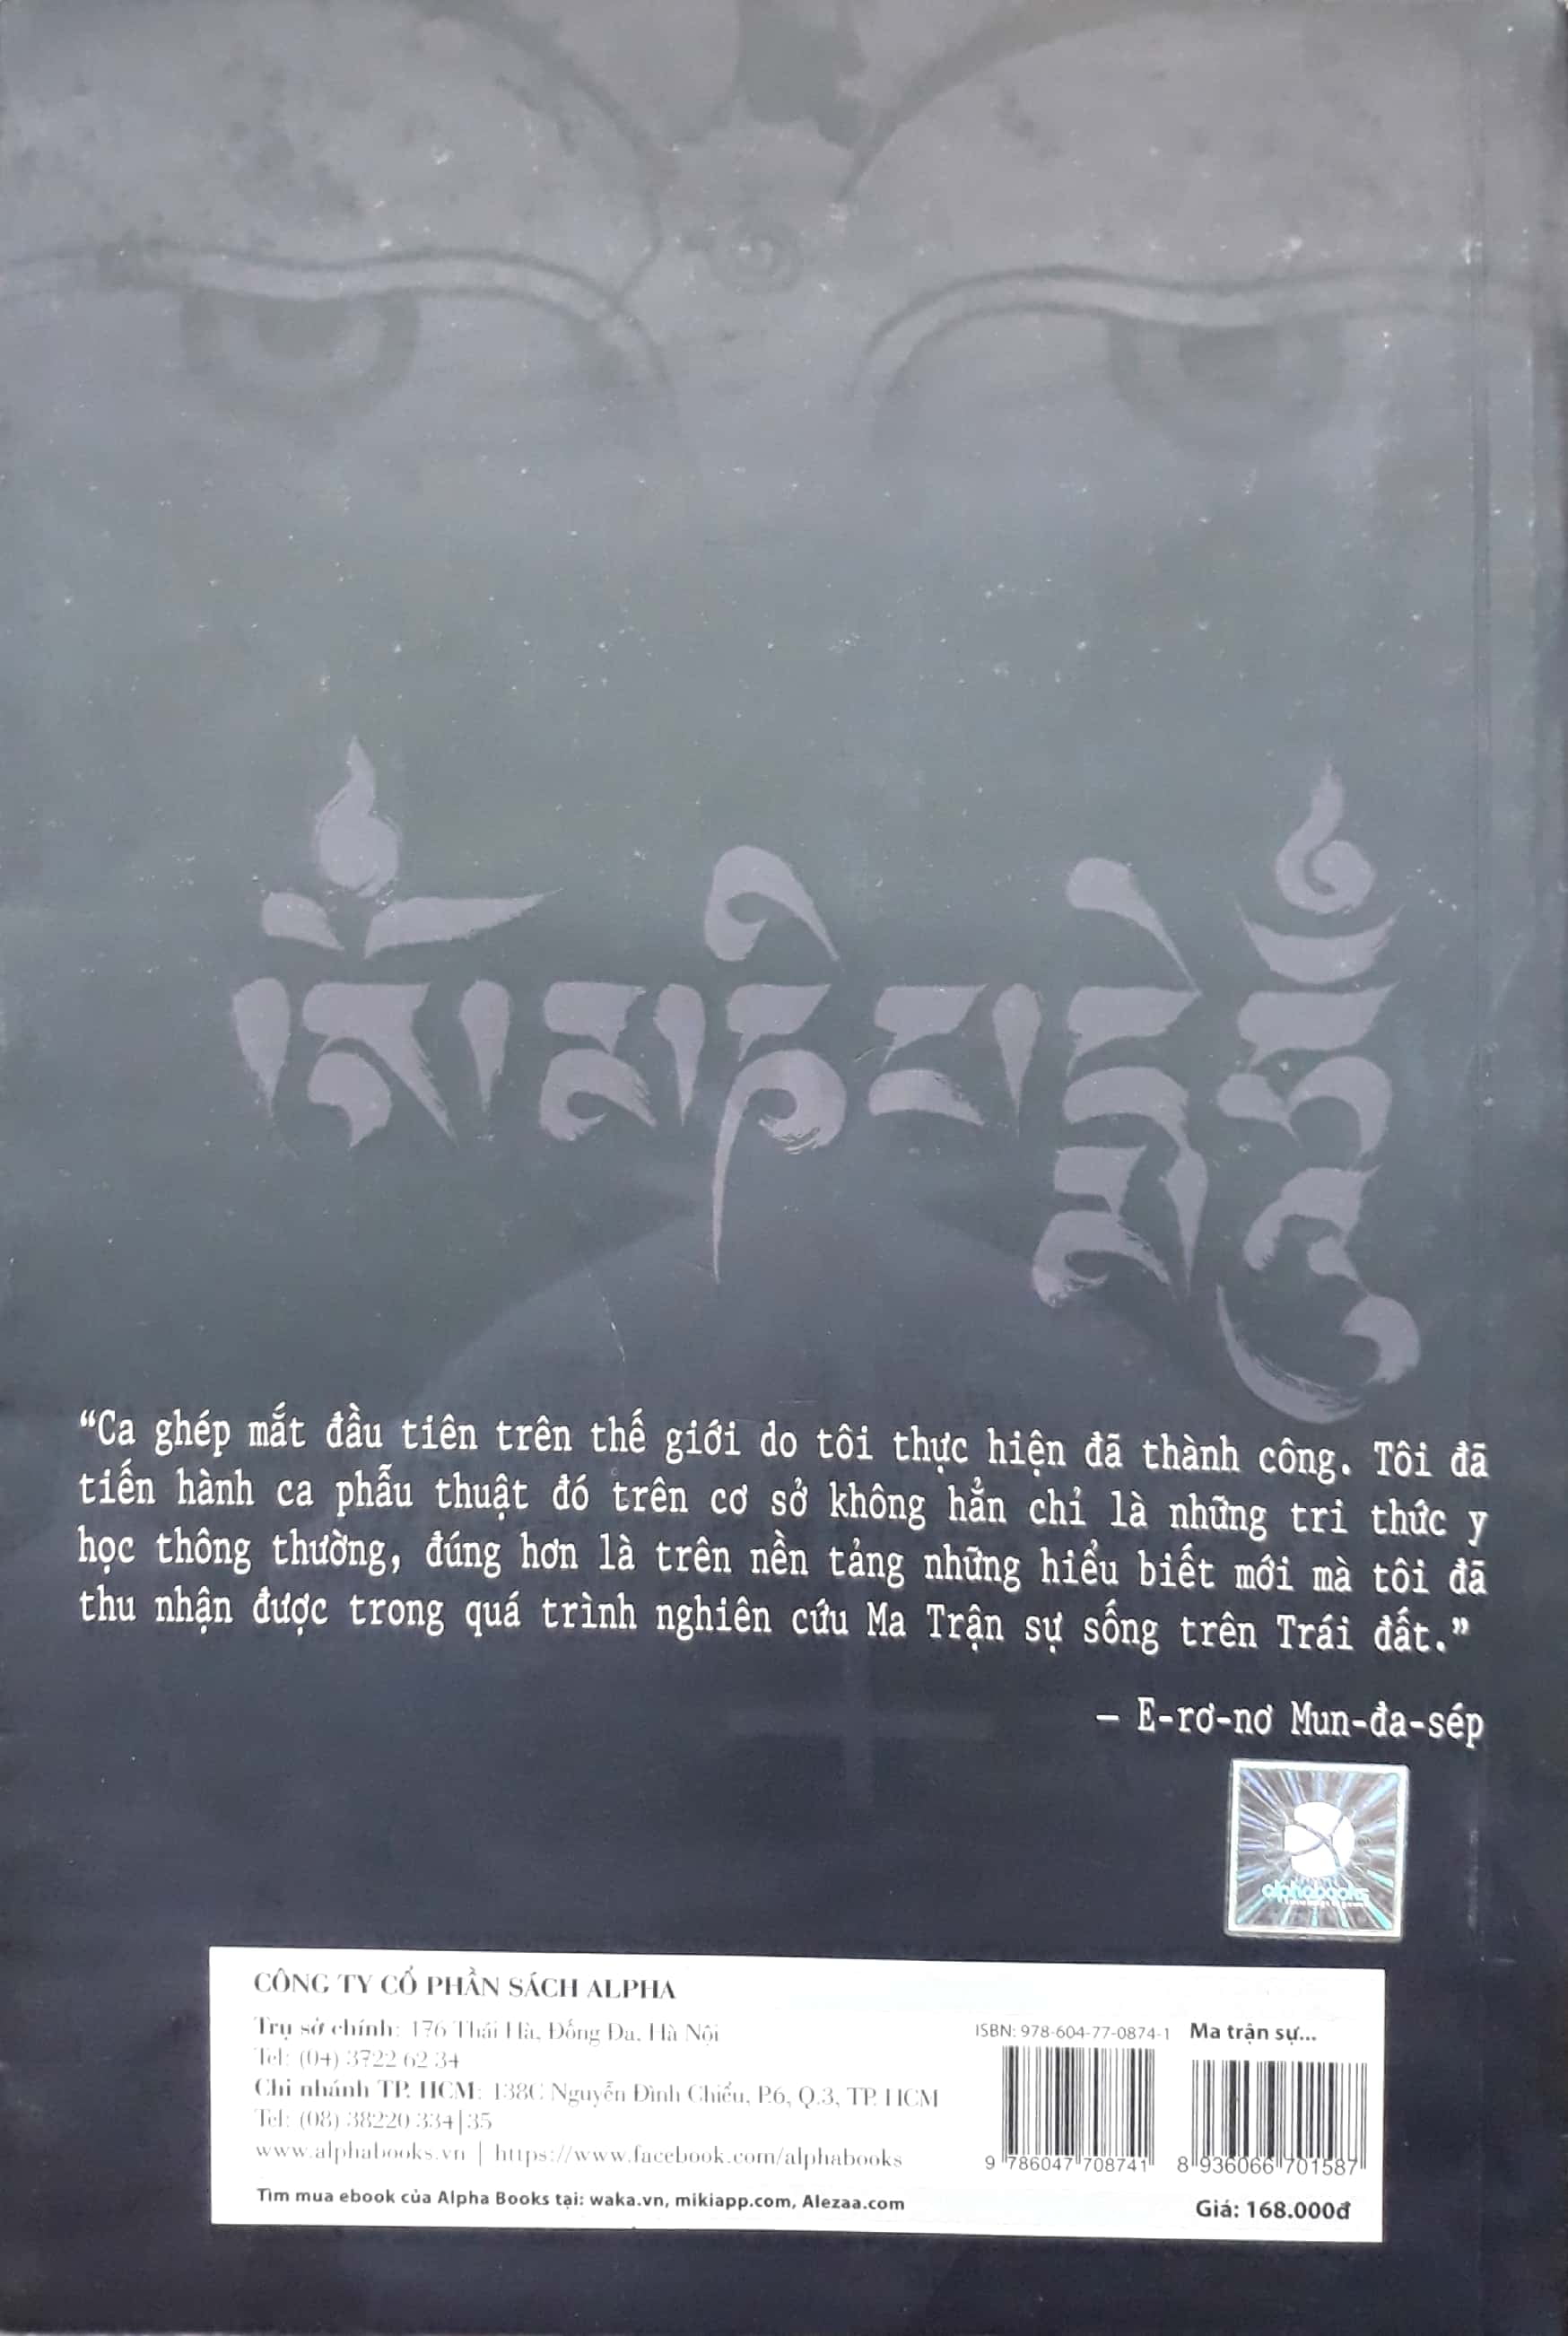 ༀམཎིཔདྨེཧཱུྃ
“Ca ghép mắt đầu tiên trên thế giới do tôi thực hiện đã thành công. Tôi đã
tiến hành ca phẫu thuật đó trên cơ sở không hẳn chỉ là những tri thức y
học thông thường, đúng hơn là trên nền tảng những hiểu biết mới mà tôi đã
thu nhận được trong quá trình nghiên cứu Ma Trận sự sống trên Trái đất.”
– E-rơ-nơ Mun-đa-sép
alphabooks
CÔNG TY CỔ PHẦN SÁCH ALPHA
Trụ sở chính: 176 Thái Hà, Đống Đa, Hà Nội
Tel: (04) 3722 62 34
Chi nhánh TP. HCM: 138C Nguyễn Đình Chiểu, P.6, Q.3, TP. HCM
Tel: (08) 38220 334|35
www.alphabooks.vn | https://www.facebook.com/alphabooks
Tìm mua ebook của Alpha Books tại: waka.vn, mikiapp.com, Alezaa.com
ISBN: 978-604-77-0874-1
9 786047 708741
Ma trận sự...
8 936066 701587
Giá: 168.000đ